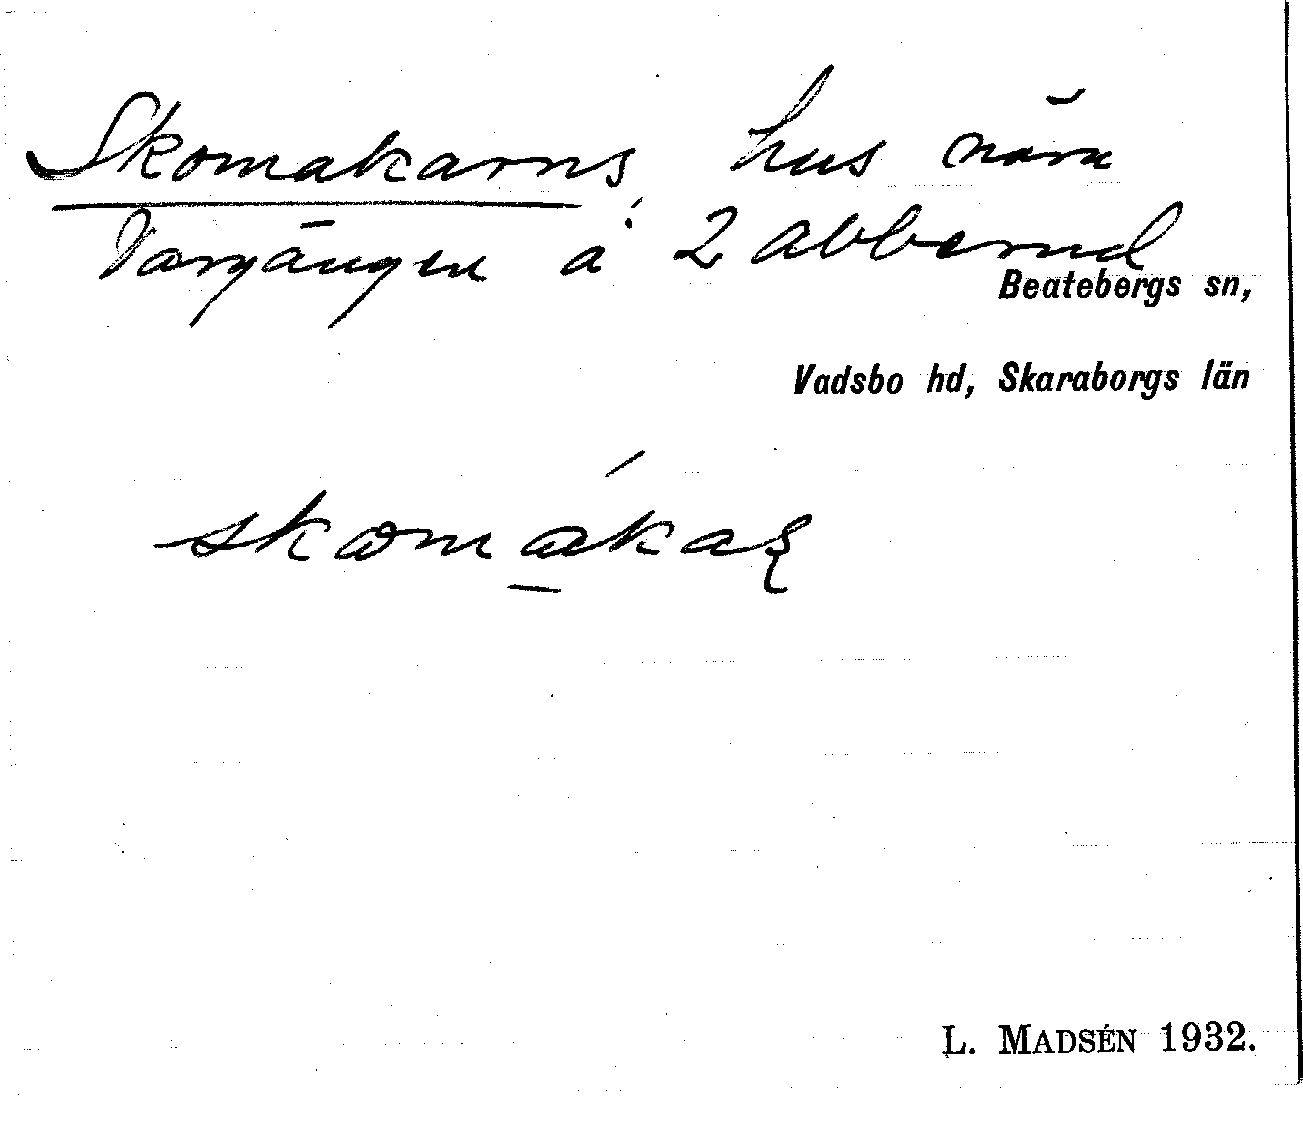 Skomakarns, hus nära
Vargängen å 2 Abberud
Beatebergs sn,
Vadsbo hd, Skaraborgs län
skomákaʂ
L. MADSÉN 1932.